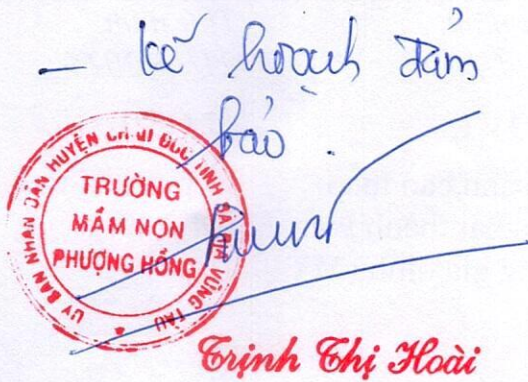 – kế hoạch đảm
bảo.
ỦY BAN NHÂN DÂN HUYỆN CHÂU ĐỨC TỈNH BÀ RỊA VŨNG TÀU
TRƯỜNG
MẦM NON
PHƯỢNG HỒNG
Trịnh Thị Hoài